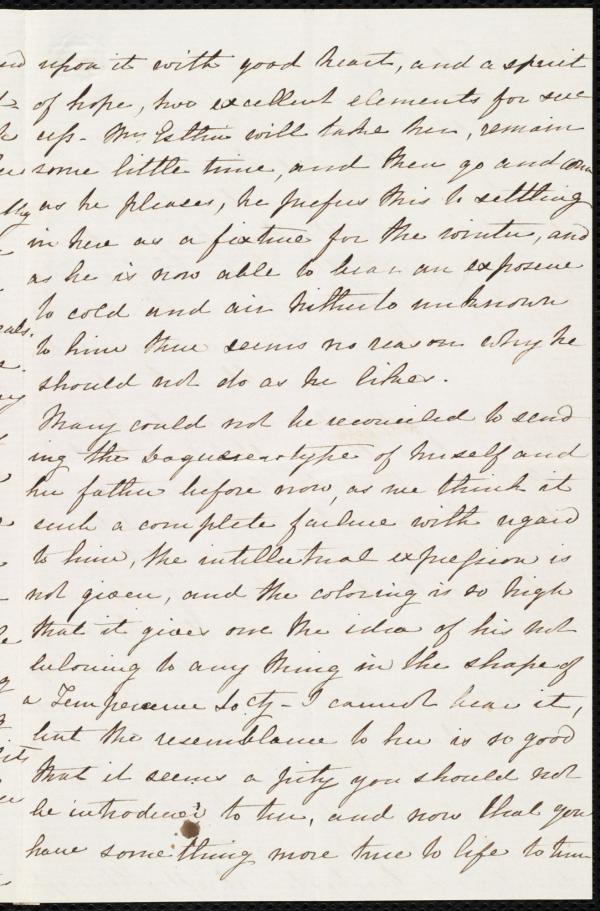 upon it with good heart, and a spirit
of hope, two excellent elements for suc
cess. Mr. Esthin will take her, remain
some little time, and then go and come
as he pleases, he prefers this to settling
in here as a fixture for the winter, and
as he is now able to bear an exposure
to cold and air hitherto unknown
to him there seems no reason why he
should not do as he likes.
Mary could not be reconciled to send
ing the Daguerreotype of herself and
her father before now, as we think it
such a complete failure with regard
to him, the intellectual expression is
not given, and the coloring is so high
that it gives one the idea of his not
beloning to any thing in the shape of
a Temperence Socty - I cannot bear it,
but the resemblance to her is so good
that it seems a pity you should not
be introduced to her, and now that you
have something more true to life to turn